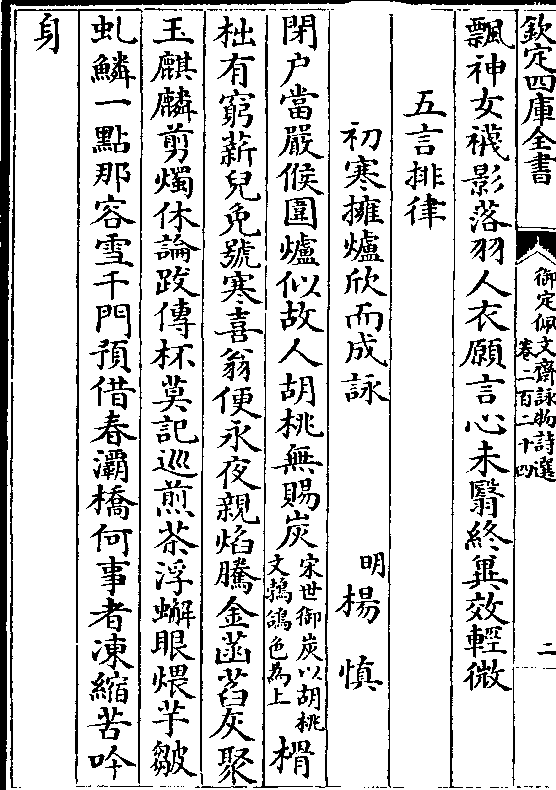 欽定四庫全書
御定佩文齋詠物詩選
卷二百二十四
二
飄神女襪影落羽人衣願言心未翳終兾效輕微
五言排律
初寒擁爐欣而成詠
明楊慎
閉户當嚴候圍爐似故人胡桃無賜炭宋世御炭以胡桃文鶉鴿色為上榾
柮有窮薪兒免號寒喜翁便永夜親焰騰金菡萏灰聚
玉麒麟剪燭休論跋傳杯莫記巡煎茶浮蠏眼煨芋皺
虬鱗一點那容雪千門預借春灞橋何事者凍縮苦吟
身